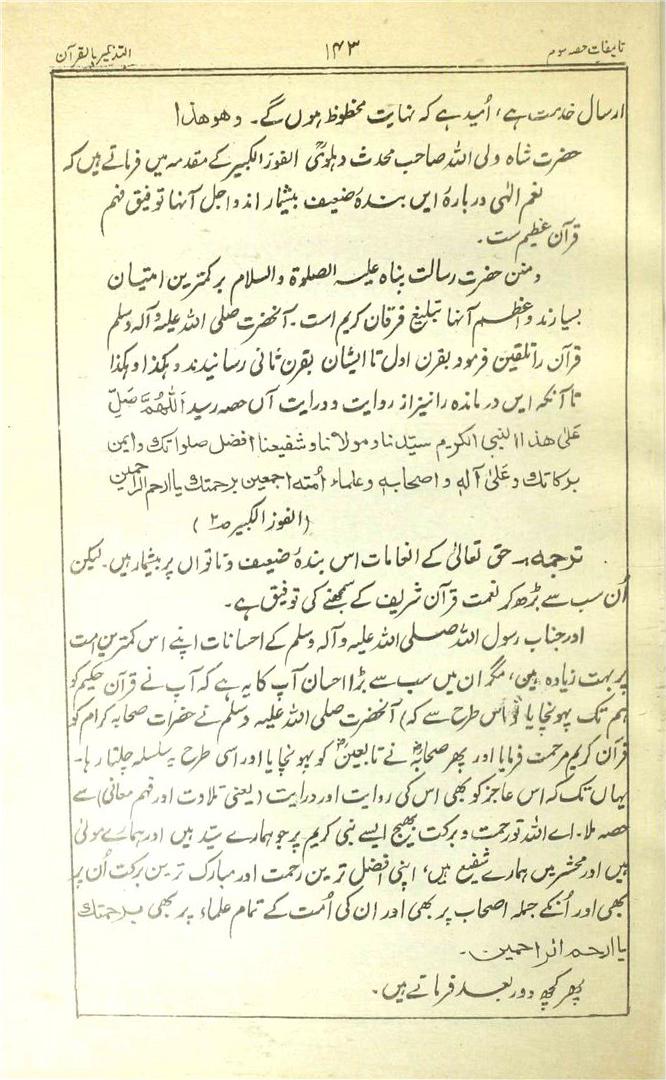 تالیفات حصہ سوم ۱۴۳ التذکیر بالقرآن
ارسال خدمت ہے، اُمید ہے کہ نہایت محظوظ ہوں گے۔ وھو ھذا
حضرت شاہ ولی اللہ صاحب محدث دہلویؒ الفوز الکبیر کے مقدمہ میں فرماتے ہیں کہ
نعم الٰہی دربارۂ ایں بندۂ ضعیف بیشمار اند و اجل آنہا توفیق فہم
قرآن عظیم ست۔
و منن حضرت رسالت پناہ علیہ الصلوٰۃ والسلام بر کمترین امتیان
بسیارند و اعظم آنہا تبلیغ فرقان کریم است۔ آنحضرت صلی اللہ علیہ وآلہ وسلم
قرآن را تلقین فرمود بقرن اول تا ایشان بقرن ثانی رسانیدند و ہکذا و ہکذا
تا آنکہ ایں درماندہ را نیز از روایت و درایت آں حصہ رسید اَللّٰھُمَّ صَلِّ
عَلیٰ ھذا النبی الکریم سیّدنا و مولانا و شفیعنا افضل صلواتك وایمن
برکاتك وعَلیٰ آلہٖ و اصحابہٖ وعلماء اُمتہ اجمعین برحمتك یا ارحم الراحمین
(الفوز الکبیر صہ۲)
ترجمہ:۔ حق تعالیٰ کے انعامات اس بندۂ ضعیف و ناتواں پر بیشمار ہیں۔ لیکن
اُن سب سے بڑھ کر نعمت قرآن شریف کے سمجھنے کی توفیق ہے۔
اور جناب رسول اللہ صلی اللہ علیہ وآلہ وسلم کے احسانات اپنے اس کمترین امت
پر بہت زیادہ ہیں، مگر ان میں سب سے بڑا احسان آپ کا یہ ہے کہ آپ نے قرآن حکیم کو
ہم تک پہونچایا (وہ اس طرح سے کہ) آنحضرت صلی اللہ علیہ وسلم نے حضرات صحابہ کرام کو
قرآن کریم مرحمت فرمایا اور پھر صحابہؓ نے تابعینؒ کو پہونچایا اور اسی طرح یہ سلسلہ چلتا رہا۔
یہاں تک کہ اس عاجز کو بھی اس کی روایت اور درایت (یعنی تلاوت اور فہم معانی) سے
حصہ ملا۔ اے اللہ تو رحمت و برکت بھیج ایسے نبی کریم پر جو ہمارے سیّد ہیں اور ہمارے مولیٰ
ہیں اور محشر میں ہمارے شفیع ہیں، اپنی افضل ترین رحمت اور مبارک ترین برکت اُن پر
بھی اور اُنکے جملہ اصحاب پر بھی اور ان کی اُمت کے تمام علماء پر بھی برحمتك
یا ارحم الراحمین۔
پھر کچھ دور بعد فرماتے ہیں۔